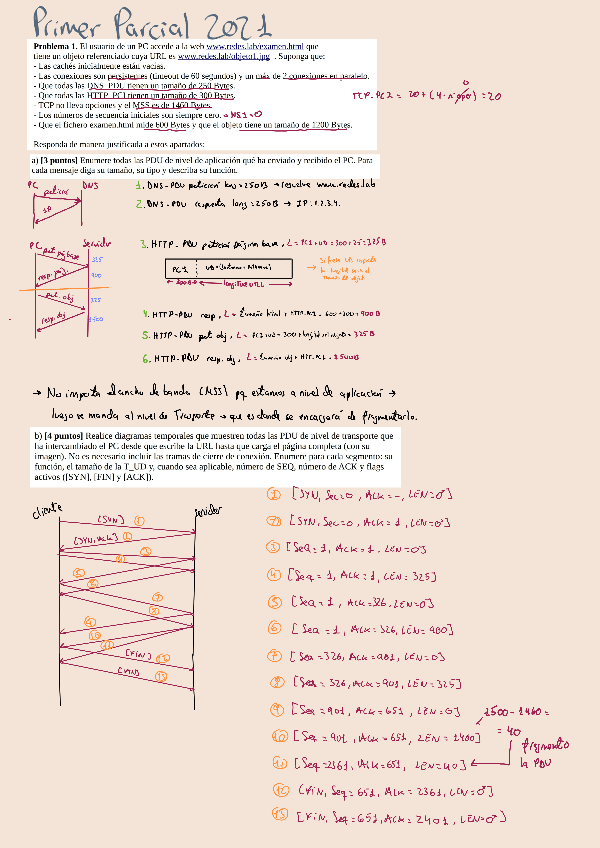 Primer Parcial 2021
Problema 1. El usuario de un PC accede a la web www.redes.lab/examen.html que
tiene un objeto referenciado cuya URL es www.redes.lab/objeto1.jpg . Suponga que:
- Las cachés inicialmente están vacías.
- Las conexiones son persistentes (timeout de 60 segundos) y un máx de 2 conexiones en paralelo.
- Que todas las DNS_PDU tienen un tamaño de 250 Bytes.
- Que todas las HTTP_PCI tienen un tamaño de 300 Bytes.
- TCP no lleva opciones y el MSS es de 1460 Bytes.
- Los números de secuencia iniciales son siempre cero. → NSI=0
- Que el fichero examen.html mide 600 Bytes y que el objeto tiene un tamaño de 1200 Bytes.
TCP-PCI = 20+(4·nºopc) = 20
0
Responda de manera justificada a estos apartados:
a) [3 puntos] Enumere todas las PDU de nivel de aplicación qué ha enviado y recibido el PC. Para
cada mensaje diga su tamaño, su tipo y describa su función.
PC DNS
petición
IP
1. DNS-PDU petición long=250B → resuelve www.redes.lab
2. DNS-PDU respuesta long=250B → IP.1.2.3.4.
PC Servidor
pet pág base
325
resp. pág.
900
pet. obj
325
resp. obj
1500
3. HTTP-PDU petición página base, L = PCI+UD = 300+25=325B
PCI
300B
longitud URL
4. HTTP-PDU resp, L = Tamaño html + HTTP-PCI = 600+300=900B
5. HTTP-PDU pet obj, L = PCI+UD = 300+longitud url objeto = 325B
6. HTTP-PDU resp. obj, L = Tamaño obj + HTTP-PCI = 1500B
→ No importa el ancho de banda (MSS) pq estamos a nivel de aplicación →
luego se manda al nivel de Transporte → que es donde se encargará de fragmentarlo.
b) [4 puntos] Realice diagramas temporales que muestren todas las PDU de nivel de transporte que
ha intercambiado el PC desde que escribe la URL hasta que carga el página completa (con su
imagen). No es necesario incluir las tramas de cierre de conexión. Enumere para cada segmento: su
función, el tamaño de la T_UD y, cuando sea aplicable, número de SEQ, número de ACK y flags
activos ([SYN], [FIN] y [ACK]).
cliente servidor
[SYN] 1
[SYN,ACK] 2
[FIN] 12
[FIN] 13
1 [SYN, Sec=0, ACK=-, LEN=0]
2 [SYN, Sec=0, ACK=1, LEN=0]
3 [SEQ=1, ACK=1, LEN=0]
4 [Seq=1, ACK=1, LEN=325]
5 [Seq=1, ACK=326, LEN=0]
6 [Seq=1, ACK=326, LEN=900]
7 [Seq=326, ACK=901, LEN=0]
8 [Seq=326, ACK=901, LEN=325]
9 [Seq=901, ACK=651, LEN=0]
10 [Seq=901, ACK=651, LEN=1460]
11 [Seq=2361, ACK=651, LEN=40]
12 [FIN, Seq=651, ACK=2361, LEN=0]
13 [FIN, Seq=651, ACK=2401, LEN=0]
1500-1460=
=40
fragmento
la PDU